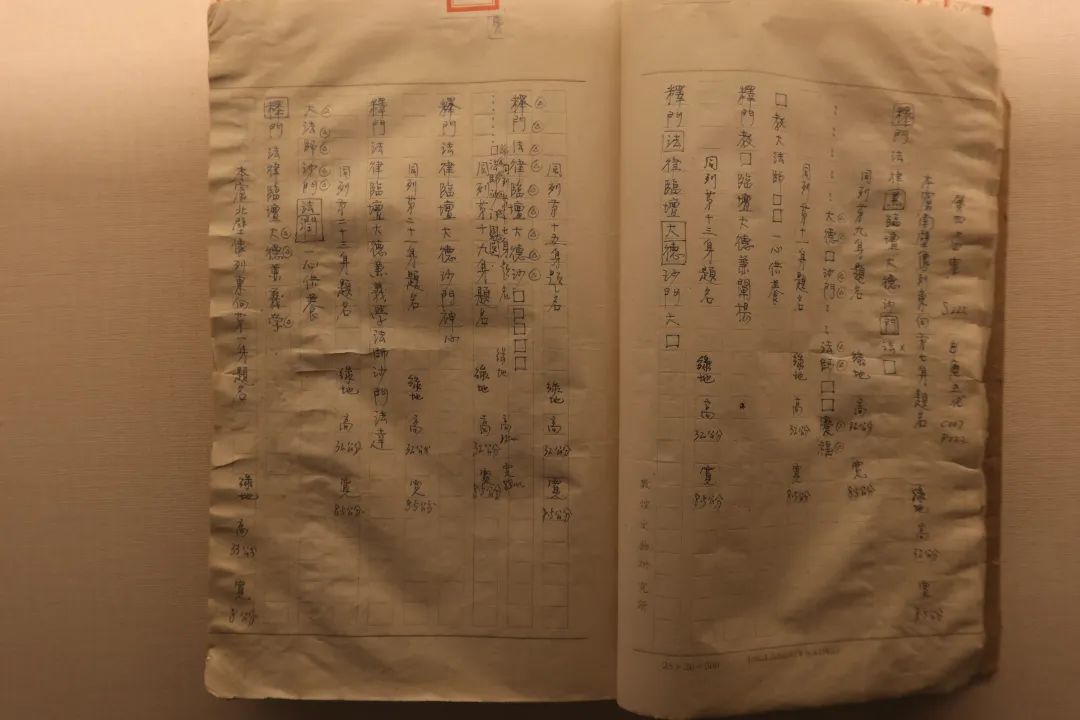 第四十窟 S222 吾窟五代 C007 P222
本窟南壁像列東向第七身題名 綠地 高32公分 寬8.5公分
釋門法律兼臨壇大德沙門法□
同列第九身題名 綠地 高32公分 寬8.5公分
大德□沙門法師□□慶福
同列第十一身題名 綠地 高32公分 寬8.5公分
□教大法師□□一心供養
釋門教□臨壇大德兼闡揚
同列第十三身題名 綠地 高32公分 寬8.5公分
釋門法律臨壇大德沙門大□
敦煌文物研究所
25×20=500
同列第十五身題名 綠地 高32公分 寬8.5公分
釋門法律臨壇大德沙□□□□
同列第十九身題名 綠地 高32公分 寬8.5公分
釋門法律臨壇大德沙門神心
同列第二十一身題名 綠地 高32公分 寬8.5公分
釋門法律臨壇大德兼義學法師沙門法達
同列第二十三身題名 綠地 高32公分 寬8.5公分
大法師沙門法 一心供養
釋門法律臨壇大德兼義學
本窟北壁像列東向第一身題名 綠地 高33公分 寬8公分